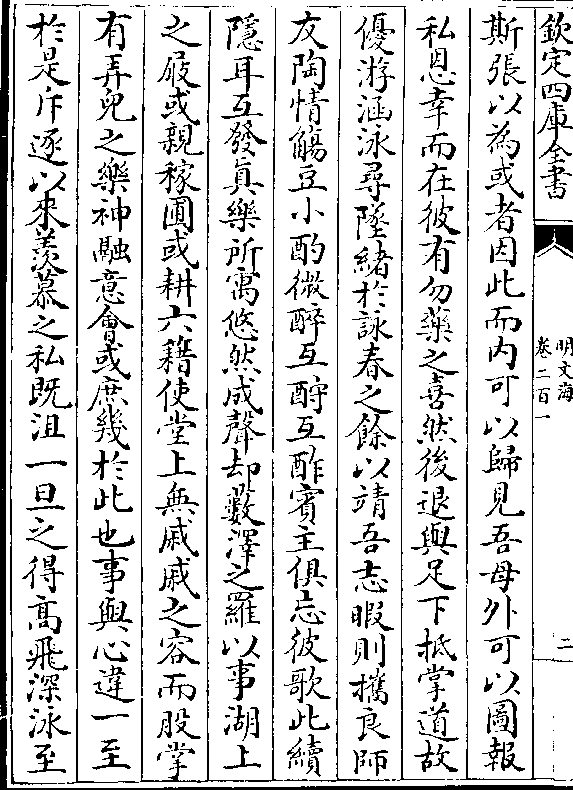 欽定四庫全書
明文海
卷二百一
二
斯張以為或者因此而内可以歸見吾母外可以圖報
私恩幸而在彼有勿藥之喜然後退與足下抵掌道故
優游涵泳尋墜緒於詠春之餘以靖吾志暇則攜良師
友陶情觴豆小酌微醉互酧互酢賓主俱忘彼歌此續
隱耳互發真樂所寓悠然成聲却藪澤之羅以事湖上
之屐或親稼圃或耕六籍使堂上無戚戚之容而股掌
有弄兒之樂神融意會或庶幾於此也事與心違一至
於是斥逐以來羡慕之私既沮一旦之得高飛深泳至